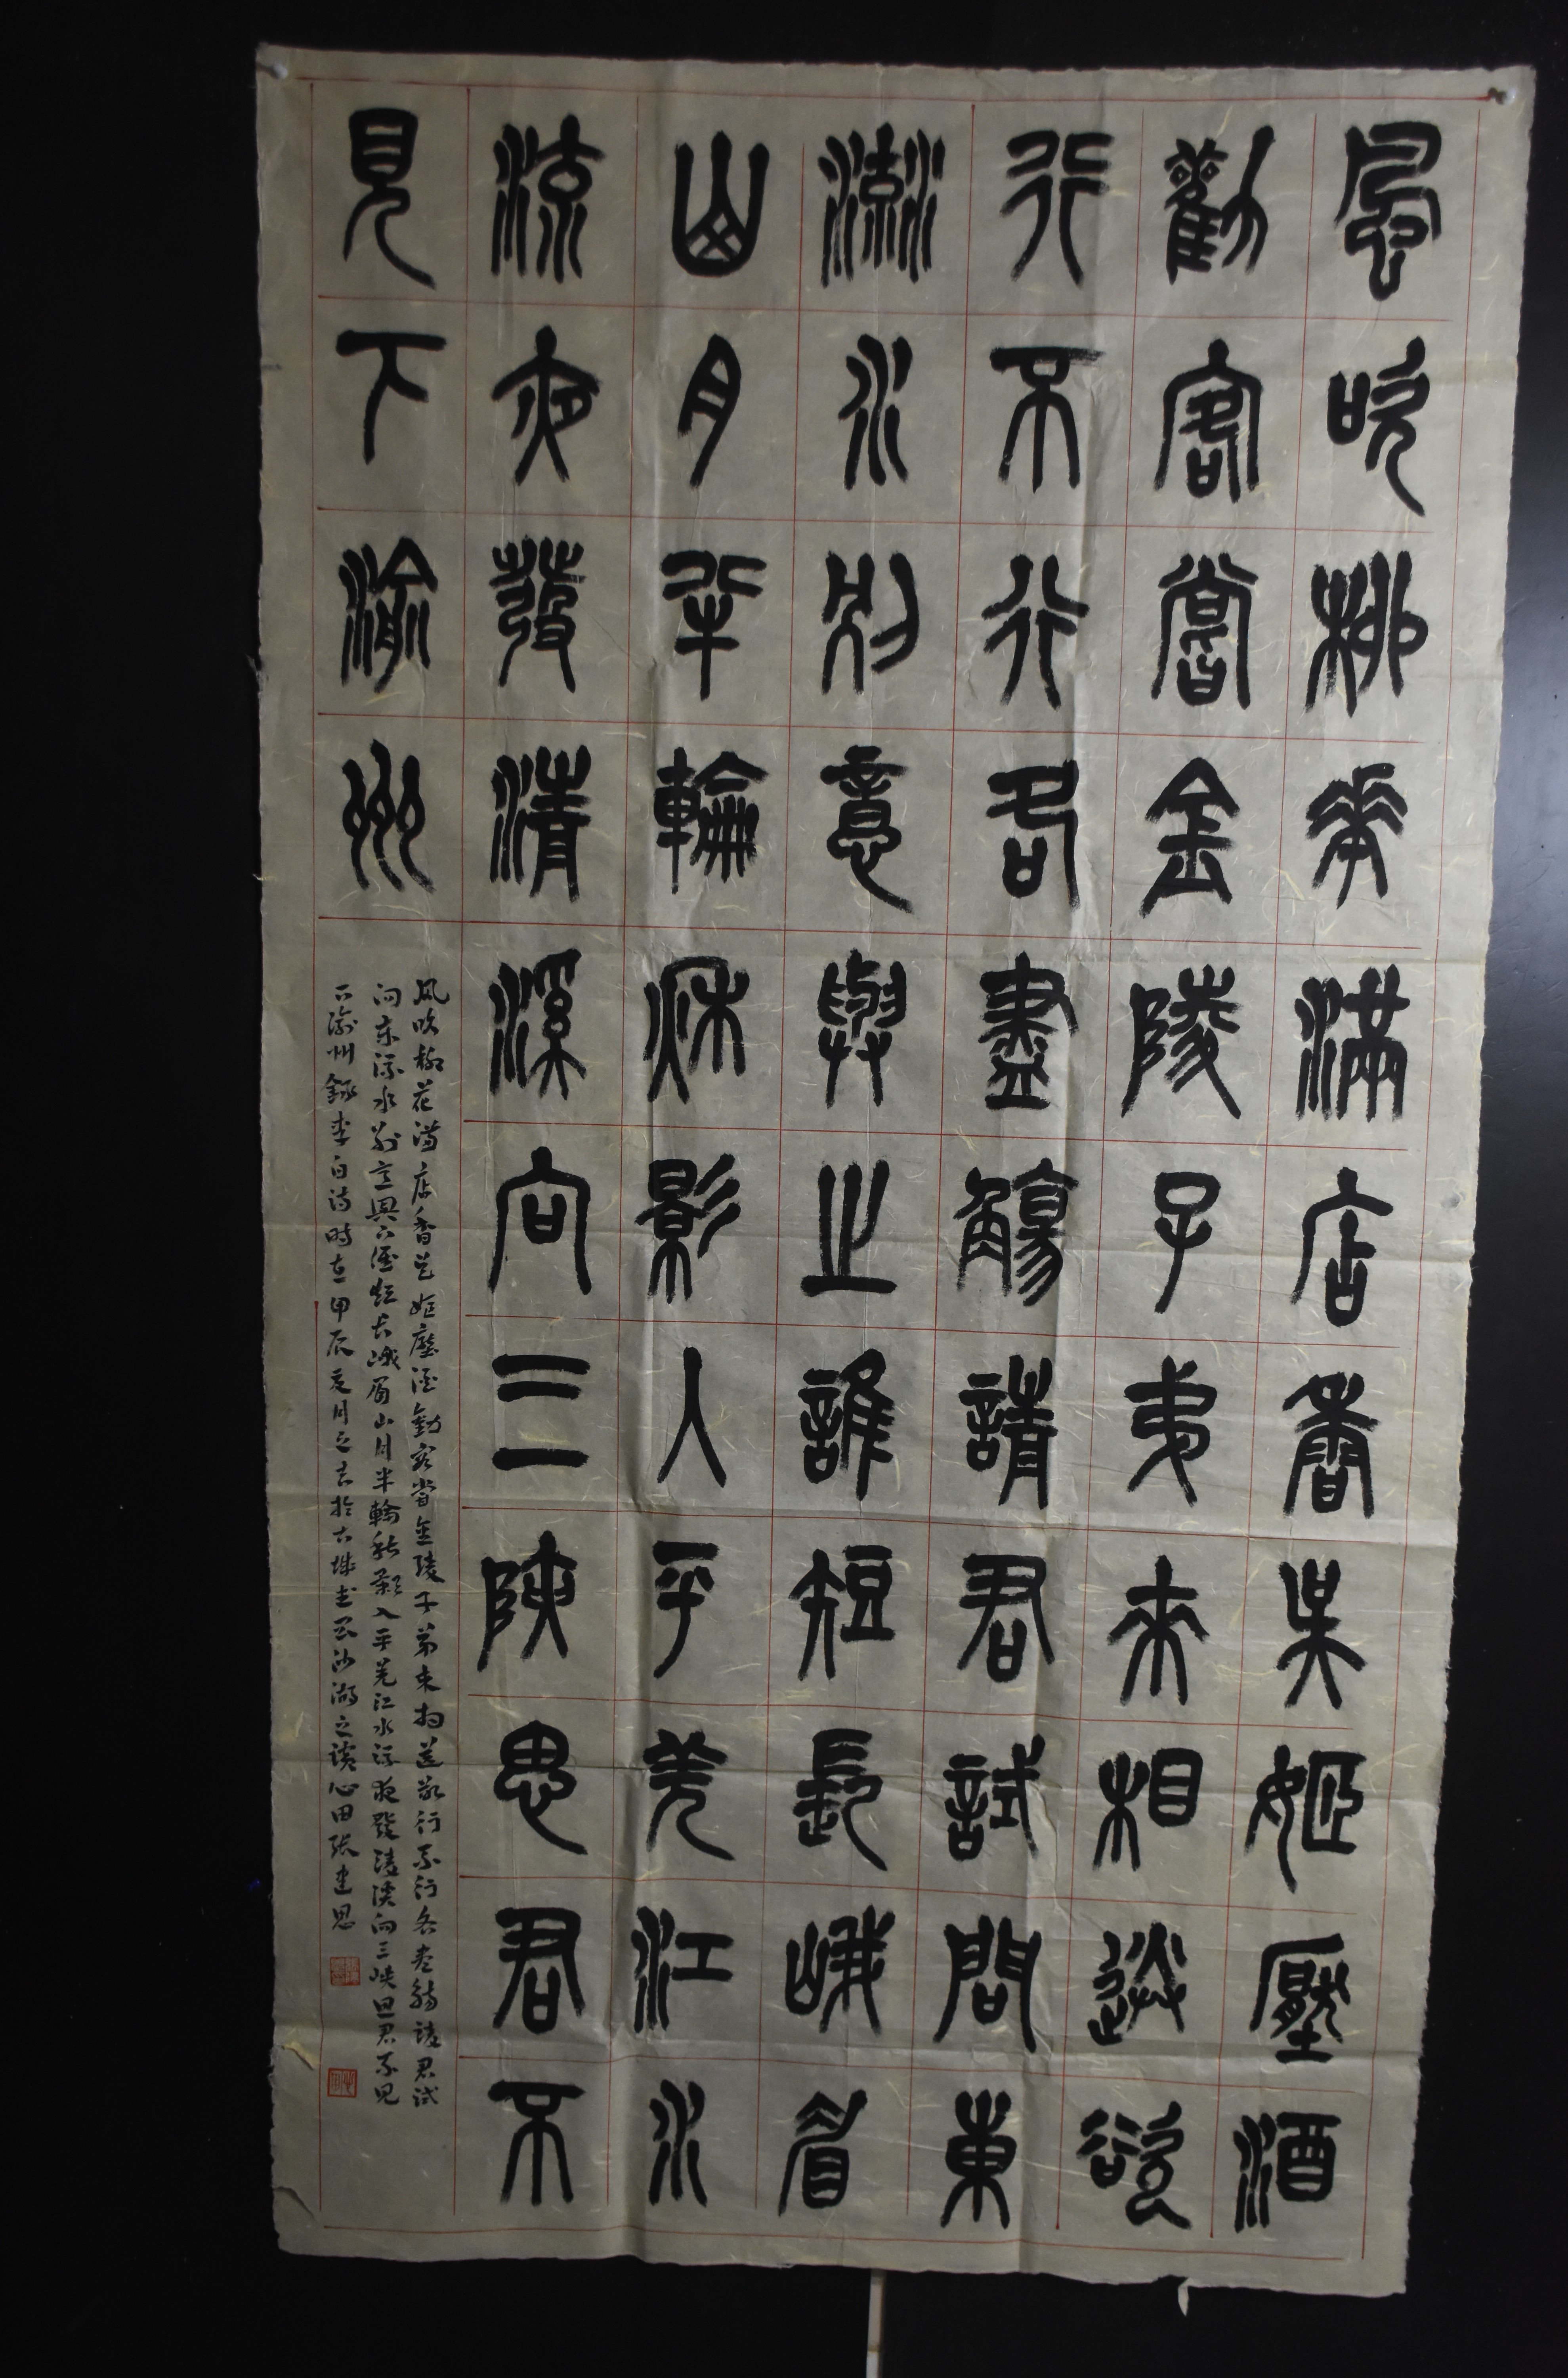 風吹柳花滿店香吴姬壓酒
勸客嘗金陵子弟来相送欲
行不行各盡觴請君試問東
流水別意與之誰短長峨眉
山月半輪秋影人平羌江水
流夜發清溪向三陝思君不
見下渝州
风吹柳花满店香吴姬壓酒勸客嘗金陵子弟来相送欲行不行各尽觴請君試
问东流水别意與之谁短长峨眉山月半輪秋影入平羌江水流夜發清溪向三峡思君不见
下渝州録李白诗时在甲辰夏月之吉於古城 沙湖之 心田张建恩